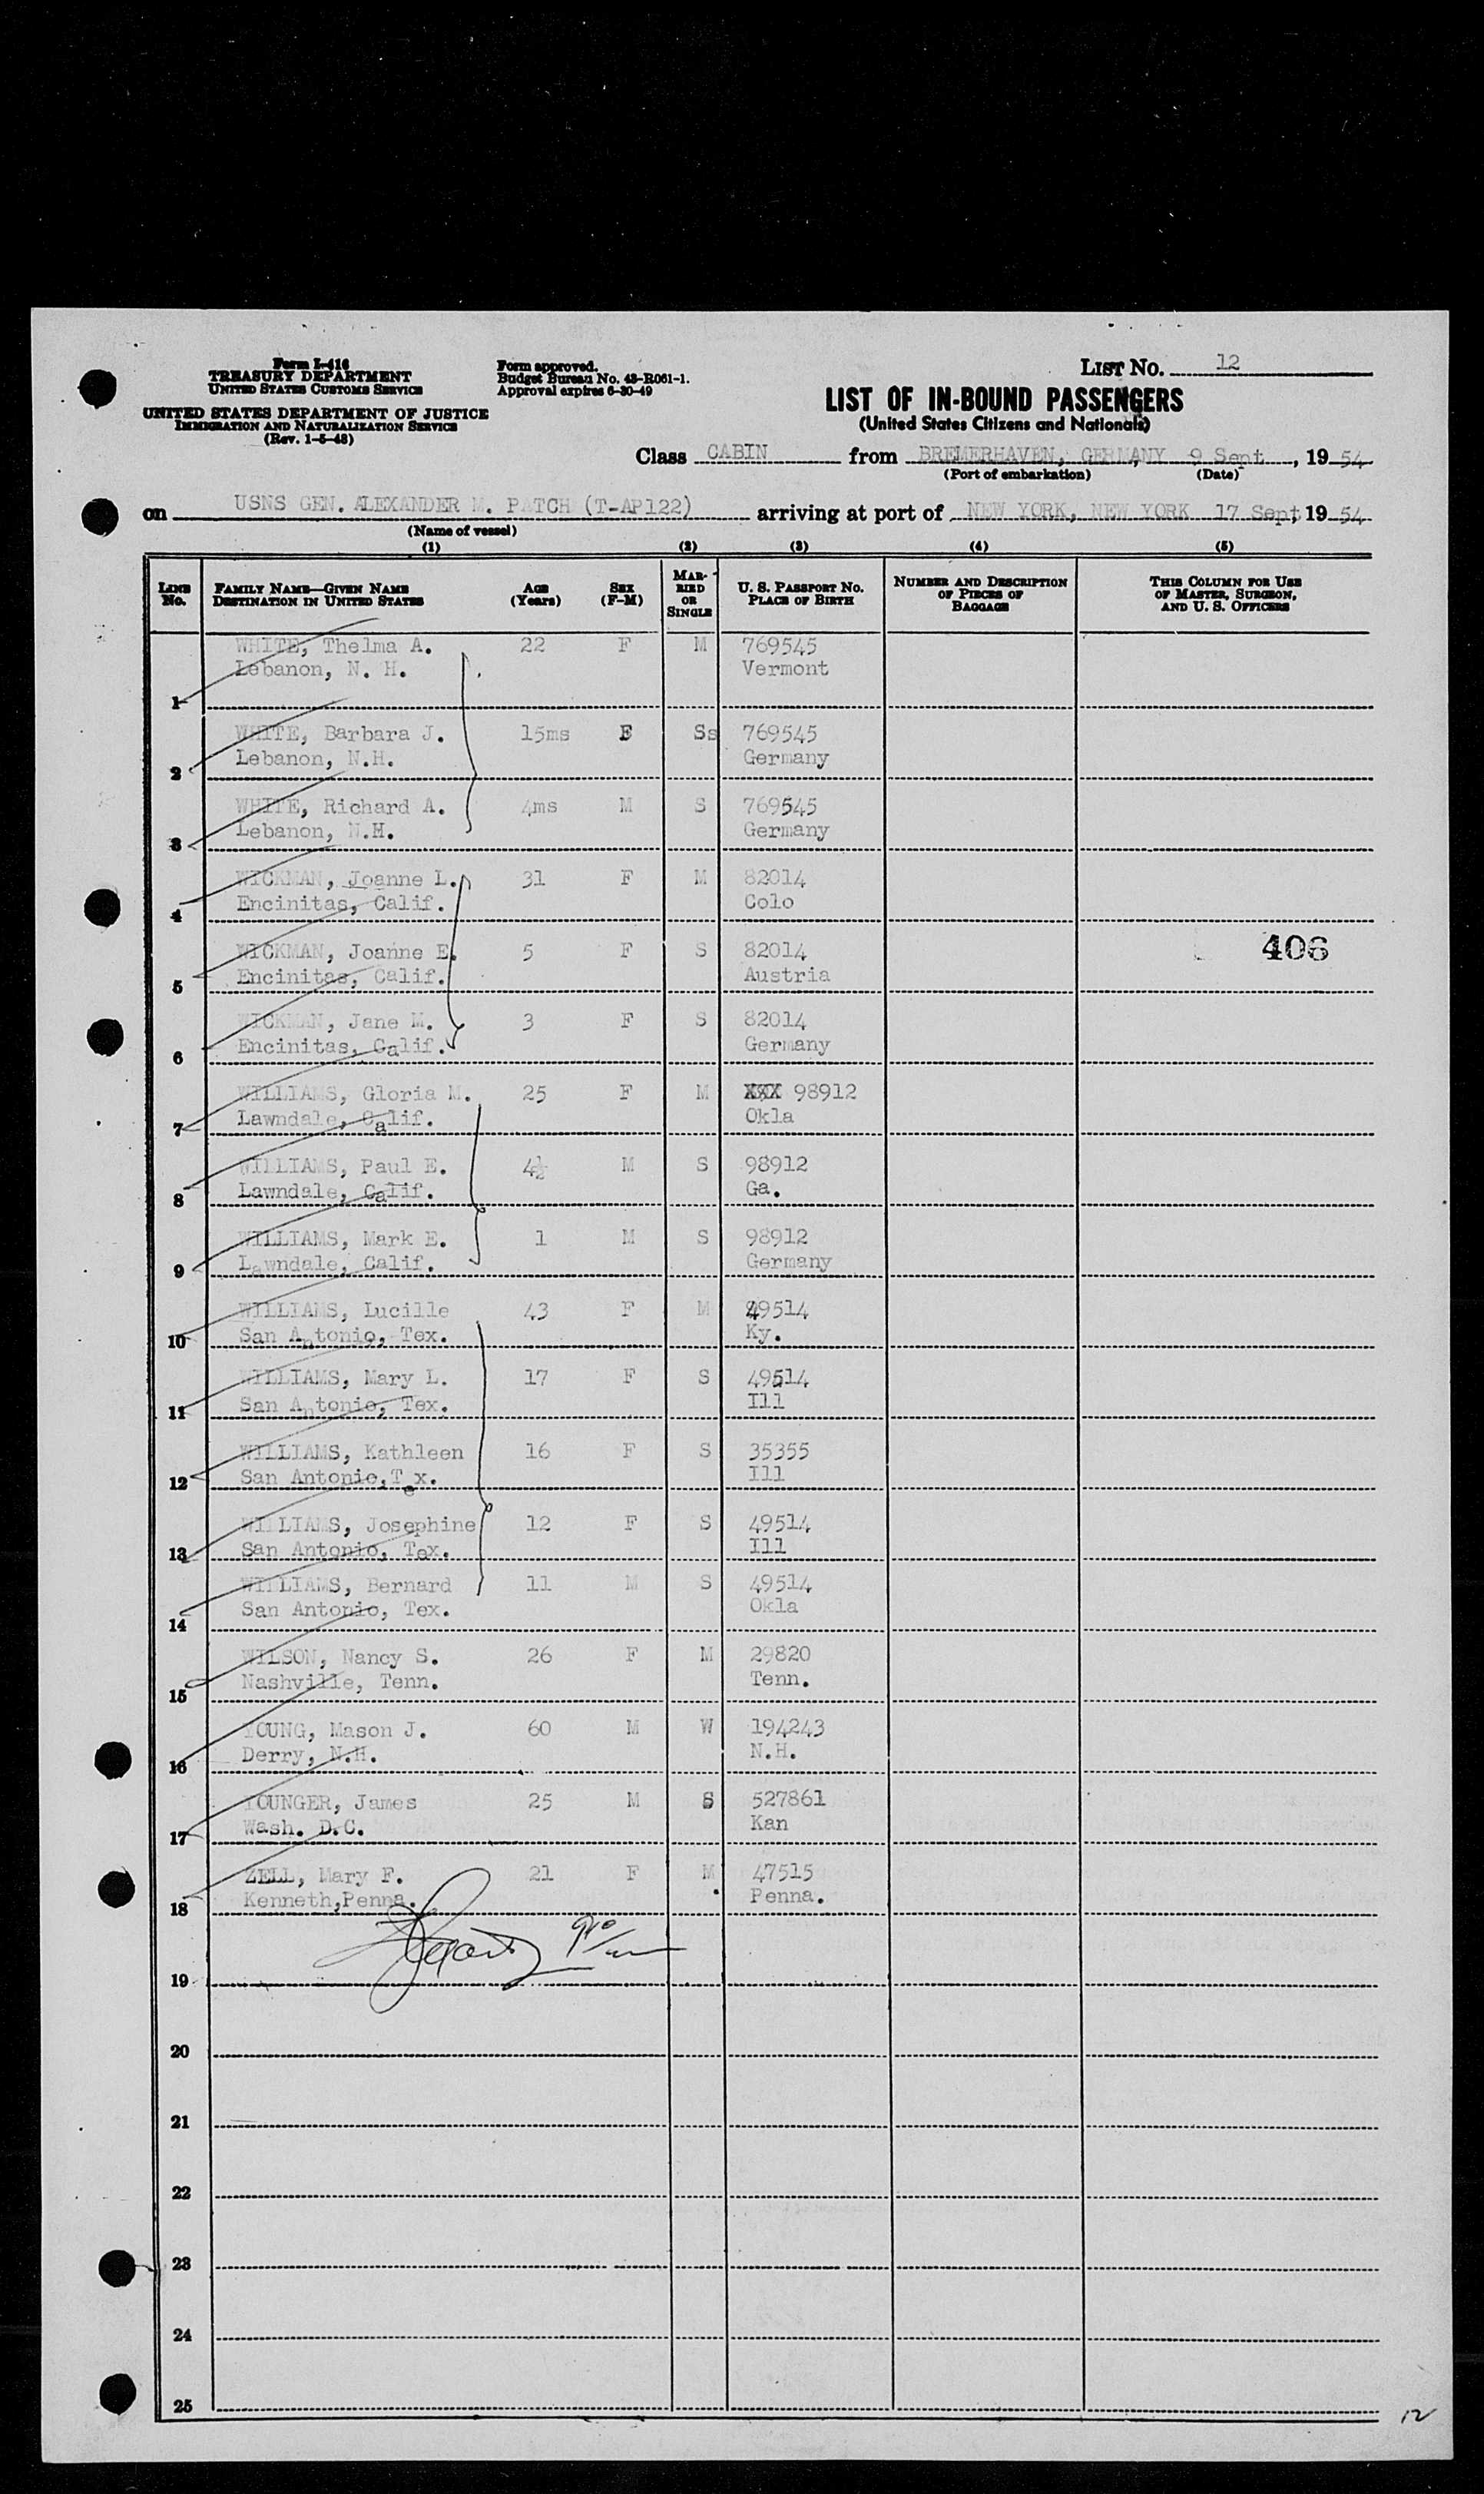 Form I-416
TREASURY DEPARTMENT
UNITED STATES CUSTOMS SERVICE
UNITED STATES DEPARTMENT OF JUSTICE
IMMIGRATION AND NATURALIZATION SERVICE
(Rev. 1-5-48)
Form approved.
Budget Bureau No. 43-R061-1.
Approval expires 6-30-49
LIST No. 12
LIST OF IN-BOUND PASSENGERS
(United States Citizens and Nationals)
Class CABIN from BREMERHAVEN, GERMANY 9 Sept, 1954
(Port of embarkation) (Date)
on USNS GEN. ALEXANDER M. PATCH (T-AP122) arriving at port of NEW YORK, NEW YORK 17 Sept, 1954
(Name of vessel)
(1) (2) (3) (4) (5)
LINE No. FAMILY NAME—GIVEN NAME DESTINATION IN UNITED STATES AGE (Years) SEX (F-M) MARRIED OR SINGLE U. S. PASSPORT NO. PLACE OF BIRTH NUMBER AND DESCRIPTION OF PIECES OF BAGGAGE THIS COLUMN FOR USE OF MASTER, SURGEON, AND U. S. OFFICERS
WHITE, Thelma A. 22 F M 769545
Lebanon, N. H. Vermont
1
WHITE, Barbara J. 15ms F Ss 769545
Lebanon, N.H. Germany
2
WHITE, Richard A. 4ms M S 769545
Lebanon, N.H. Germany
3
WICKMAN, Joanne L. 31 F M 82014
Encinitas, Calif. Colo
4
WICKMAN, Joanne E. 5 F S 82014 406
Encinitas, Calif. Austria
5
WICKMAN, Jane M. 3 F S 82014
Encinitas, Calif. Germany
6
WILLIAMS, Gloria M. 25 F M XXX 98912
Lawndale, Calif. Okla
7
WILLIAMS, Paul E. 4½ M S 98912
Lawndale, Calif. Ga.
8
WILLIAMS, Mark E. 1 M S 98912
Lawndale, Calif. Germany
9
WILLIAMS, Lucille 43 F M 49514
San Antonio, Tex. Ky.
10
WILLIAMS, Mary L. 17 F S 49514
San Antonio, Tex. Ill
11
WILLIAMS, Kathleen 16 F S 35355
San Antonio,Tex. Ill
12
WILLIAMS, Josephine 12 F S 49514
San Antonio, Tex. Ill
13
WILLIAMS, Bernard 11 M S 49514
San Antonio, Tex. Okla
14
WILSON, Nancy S. 26 F M 29820
Nashville, Tenn. Tenn.
15
YOUNG, Mason J. 60 M W 194243
Derry, N.H. N.H.
16
YOUNGER, James 25 M S 527861
Wash. D.C. Kan
17
ZELL, Mary F. 21 F M 47515
Kenneth,Penna. Penna.
18
19
20
21
22
23
24
25
12